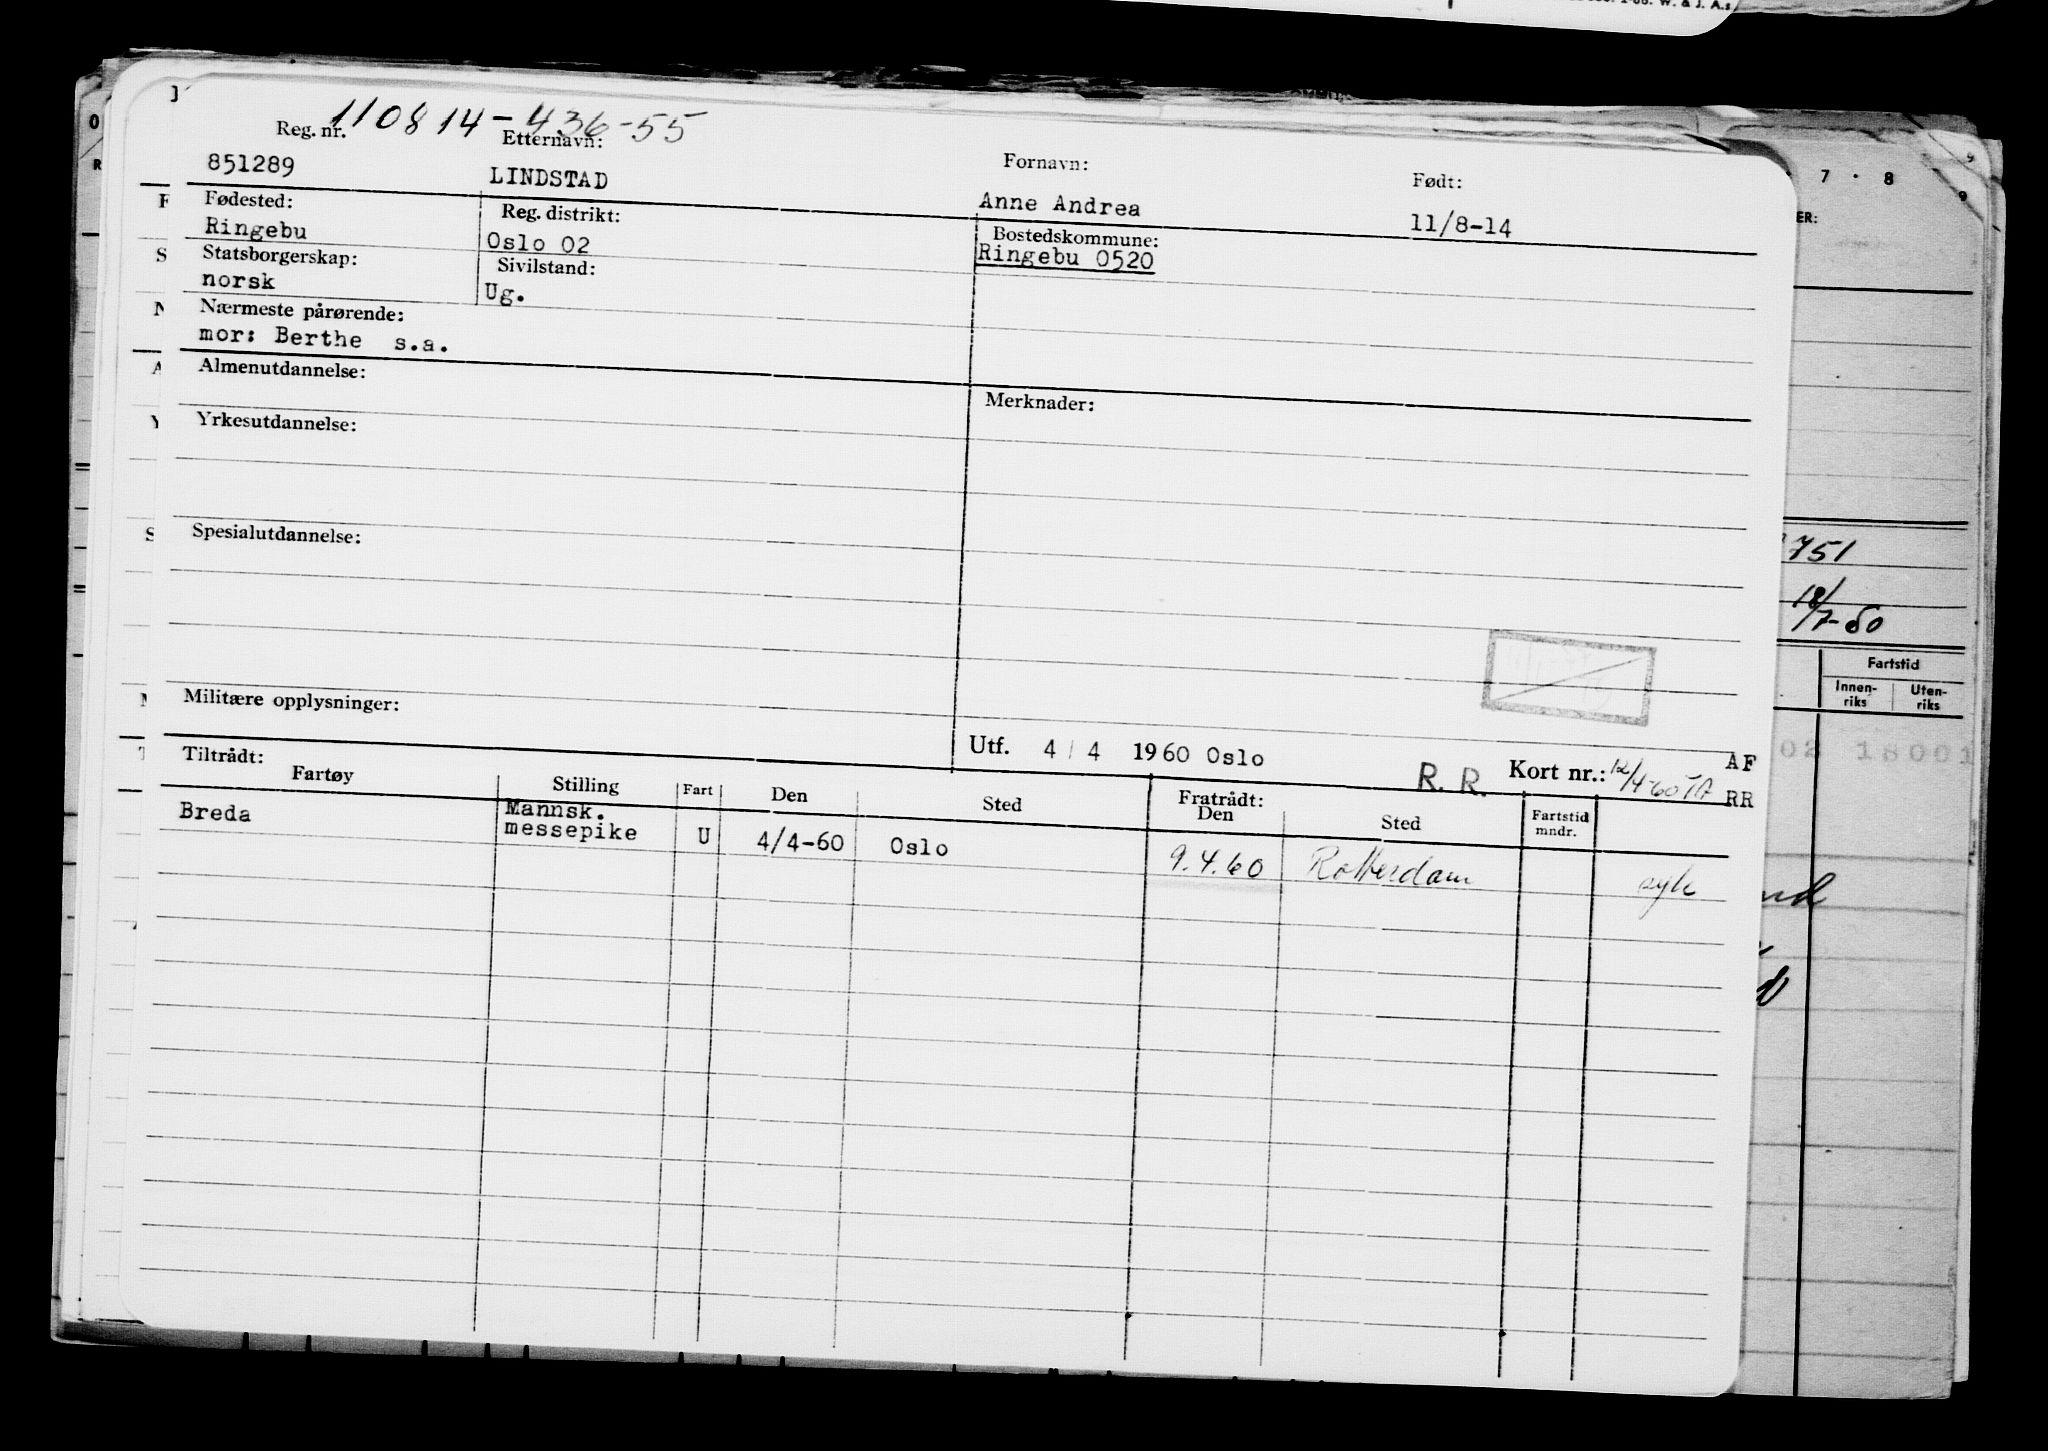 110814-436-55
Reg. nr. Etternavn: Fornavn: Født:
851289 LINDSTAD Anne Andrea 11/8-14
Fødested: Reg. distrikt: Bostedskommune:
Ringebu Oslo 02 Ringebu 0520
Statsborgerskap: Sivilstand:
norsk Ug.
Nærmeste pårørende:
mor: Berthe s.a.
Almenutdannelse: Merknader:
Yrkesutdannelse:
Spesialutdannelse:
Militære opplysninger:
Utf. 4/4 1960 Oslo R. R. Kort nr.: 12/4-60 AF
RR
Tiltrådt: Fratrådt:
Fartøy Stilling Fart Den Sted Den Sted Fartstid mndr.
Breda Mannsk. messepike U 4/4-60 Oslo 9.4.60 Rotterdam syk
7 . 8
9
9
ER:
751
18/7-50
Fartstid
Innen-riks Uten-riks
02 18001
nd
W. & J. A.s